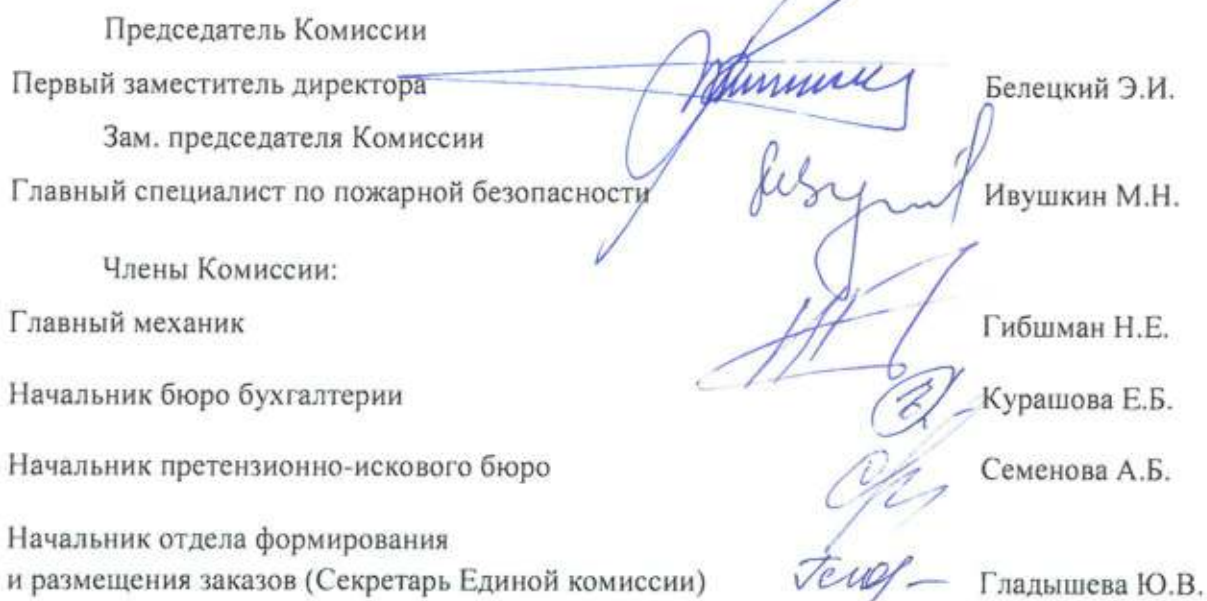 Председатель Комиссии
Первый заместитель директора Белецкий Э.И.
Зам. председателя Комиссии
Главный специалист по пожарной безопасности Ивушкин М.Н.
Члены Комиссии:
Главный механик Гибшман Н.Е.
Начальник бюро бухгалтерии Курашова Е.Б.
Начальник претензионно-искового бюро Семенова А.Б.
Начальник отдела формирования
и размещения заказов (Секретарь Единой комиссии) Гладышева Ю.В.